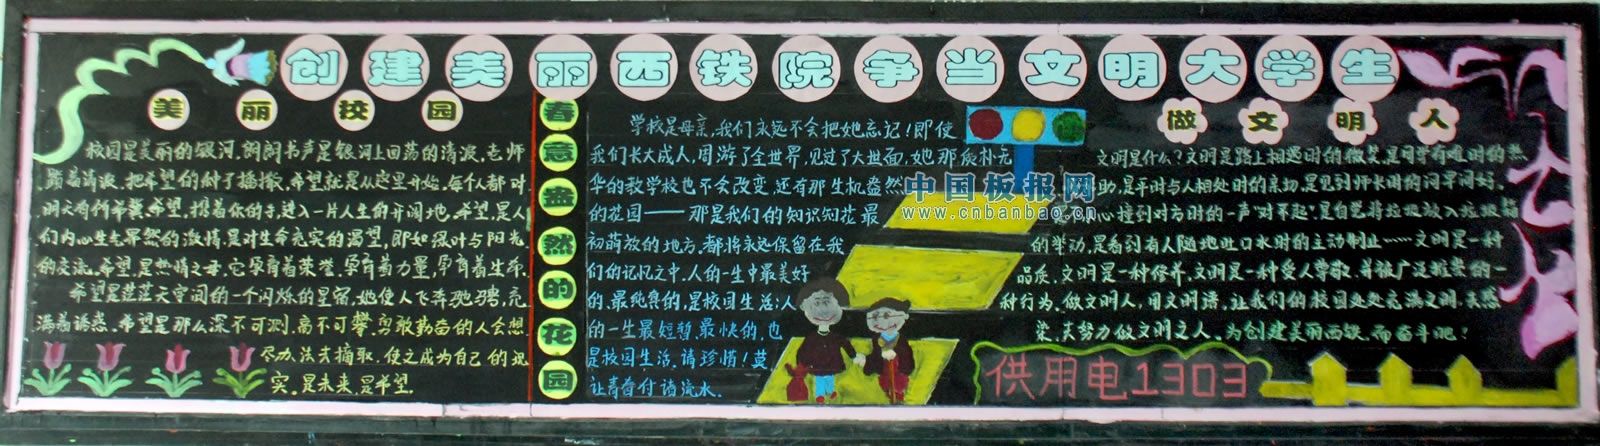 创建美丽西铁院争当文明大学生
美丽校园
校园是美丽的银河,朗朗书声是银河上回荡的清波,老师
踏着清波,把希望的种子播撒,希望就是从这里开始,每个人都对
明天有所希冀,希望,携着你的手,进入一片人生的开阔地,希望,是人
们内心生气界然的激情,是对生命充实的渴望,即如绿叶与阳光
的交流,希望,是热情之母,它孕育着荣誉,孕育着力量,孕育着生命.
希望是茫茫天空间的一个闪烁的星宿,她使人飞奔驰骋,充
满着诱惑,希望是那么深不可测,高不可攀,勇敢勤奋的人会想
尽办法去摘取,使之成为自己的现
实,是未来,是希望.
春意盎然的花园
学校是母亲,我们永远不会把她忘记!即使
我们长大成人,周游了全世界,见过了大世面,她那质朴无
华的教学校也不会改变,还有那生机盎然
的花园——那是我们的知识知花最
初萌放的地方,都将永远保留在我
们的记忆之中.人的一生中最美好
的,最纯真的,是校园生活;人
的一生最短暂,最快的,也
是校园生活,请珍惜!莫
让青春付诸流水.
中国板报网
www.cnbanbao.cn
做文明人
文明是什么?文明是路上相遇时的微笑,是同学有难时的热
助,是平时与人相处时的亲切,是见到师长时的问早问好,
心撞到对方时的一声"对不起",是自觉将垃圾放入垃圾箱
的举动,是看到有人随地吐口水时的主动制止……文明是一种
品质,文明是一种修养,文明是一种受人尊敬,并被广泛推崇的一
种行为,做文明人,用文明语,让我们的校园处处充满文明,天然
梁,夫努力做文明之人,为创建美丽西铁,而奋斗吧!
供用电1303